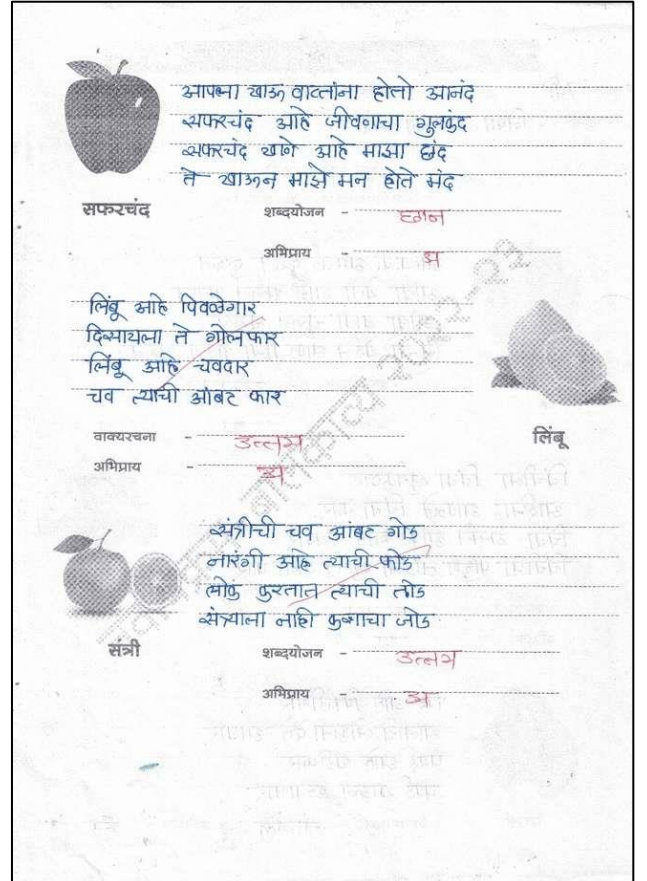 आपला खाऊ वाटतांना होतो आनंद
सफरचंद आहे जीवनाचा गुलकंद
सफरचंद खाणे आहे माझा छंद
ते खाऊन माझे मन होते मंद
सफरचंद
शब्दयोजन - छान
अभिप्राय - अ
लिंबू आहे पिवळेगार
दिसायला ते गोल फार
लिंबू आहे चवदार
चव त्याची आंबट फार
लिंबू
वाक्यरचना - उत्तम
अभिप्राय - अ
संत्रीची चव आंबट गोड
नारंगी आहे त्याची फोड
लोकं करतात त्याची तोड
संत्र्याला नाही कशाचा जोड
संत्री
शब्दयोजन - उत्तम
अभिप्राय - अ
बालकाव्य २०२२-२३